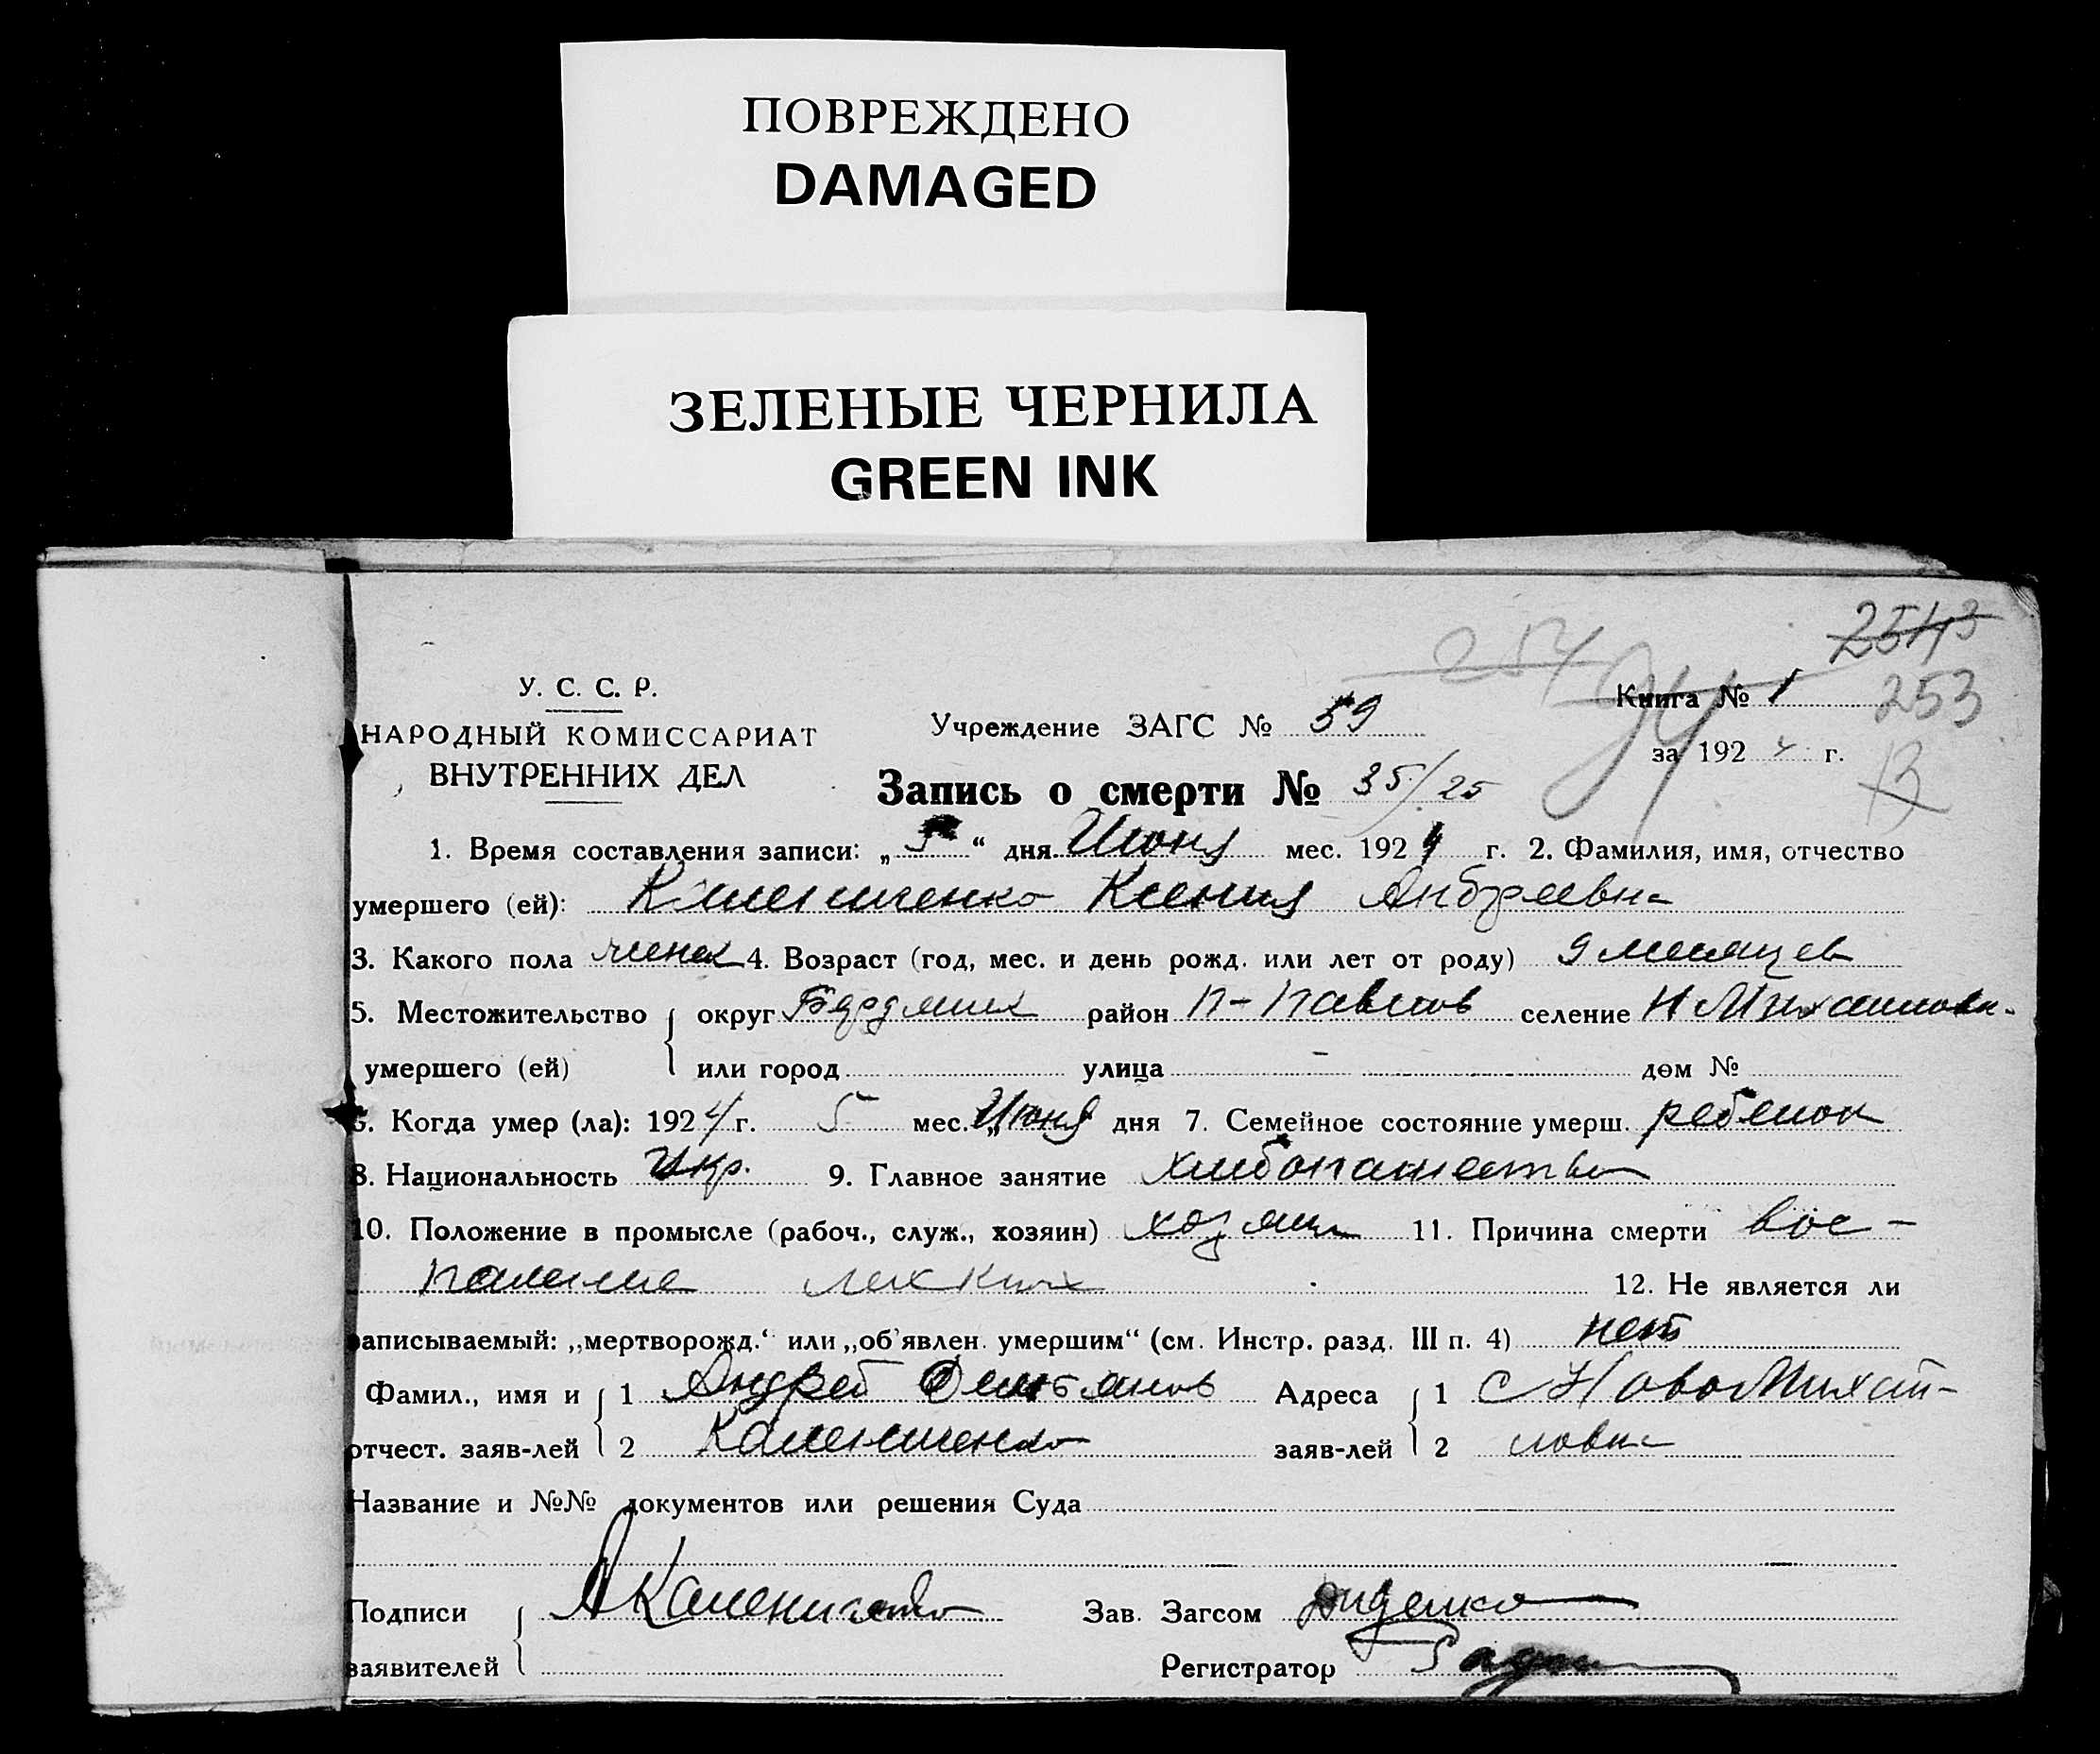 ПОВРЕЖДЕНО
DAMAGED
ЗЕЛЕНЫЕ ЧЕРНИЛА
GREEN INK
2543
254
94
253
У. С. С. Р.
НАРОДНЫЙ КОМИССАРИАТ
ВНУТРЕННИХ ДЕЛ
Книга № 1
Учреждение ЗАГС № 59
за 1924 г.
Запись о смерти № 35/25
1. Время составления записи: „5“ дня Июня мес. 1924 г. 2. Фамилия, имя, отчество
умершего (ей): Калениченко Ксения Андреевна
3. Какого пола женск 4. Возраст (год, мес. и день рожд. или лет от роду) 9 месяцев
5. Местожительство округ Бердянск район П-Павлов селение Н Михайловка
умершего (ей) или город улица - дом №
6. Когда умер (ла): 1924 г. 5 мес. „Июня дня 7. Семейное состояние умерш. ребенок
8. Национальность Укр. 9. Главное занятие хлебопашество
10. Положение в промысле (рабоч., служ., хозяин) хозяин 11. Причина смерти вос-
паление легких 12. Не является ли
записываемый: „мертворожд.“ или „об'явлен. умершим“ (см. Инстр. разд. III п. 4) нет
Фамил., имя и 1 Андрей Адреса 1 с Ново Михай-
отчест. заяв-лей 2 Калениченко заяв-лей 2 ловка
Название и №№ документов или решения Суда
Подписи А Калениченко Зав. Загсом Диденко
заявителей Регистратор